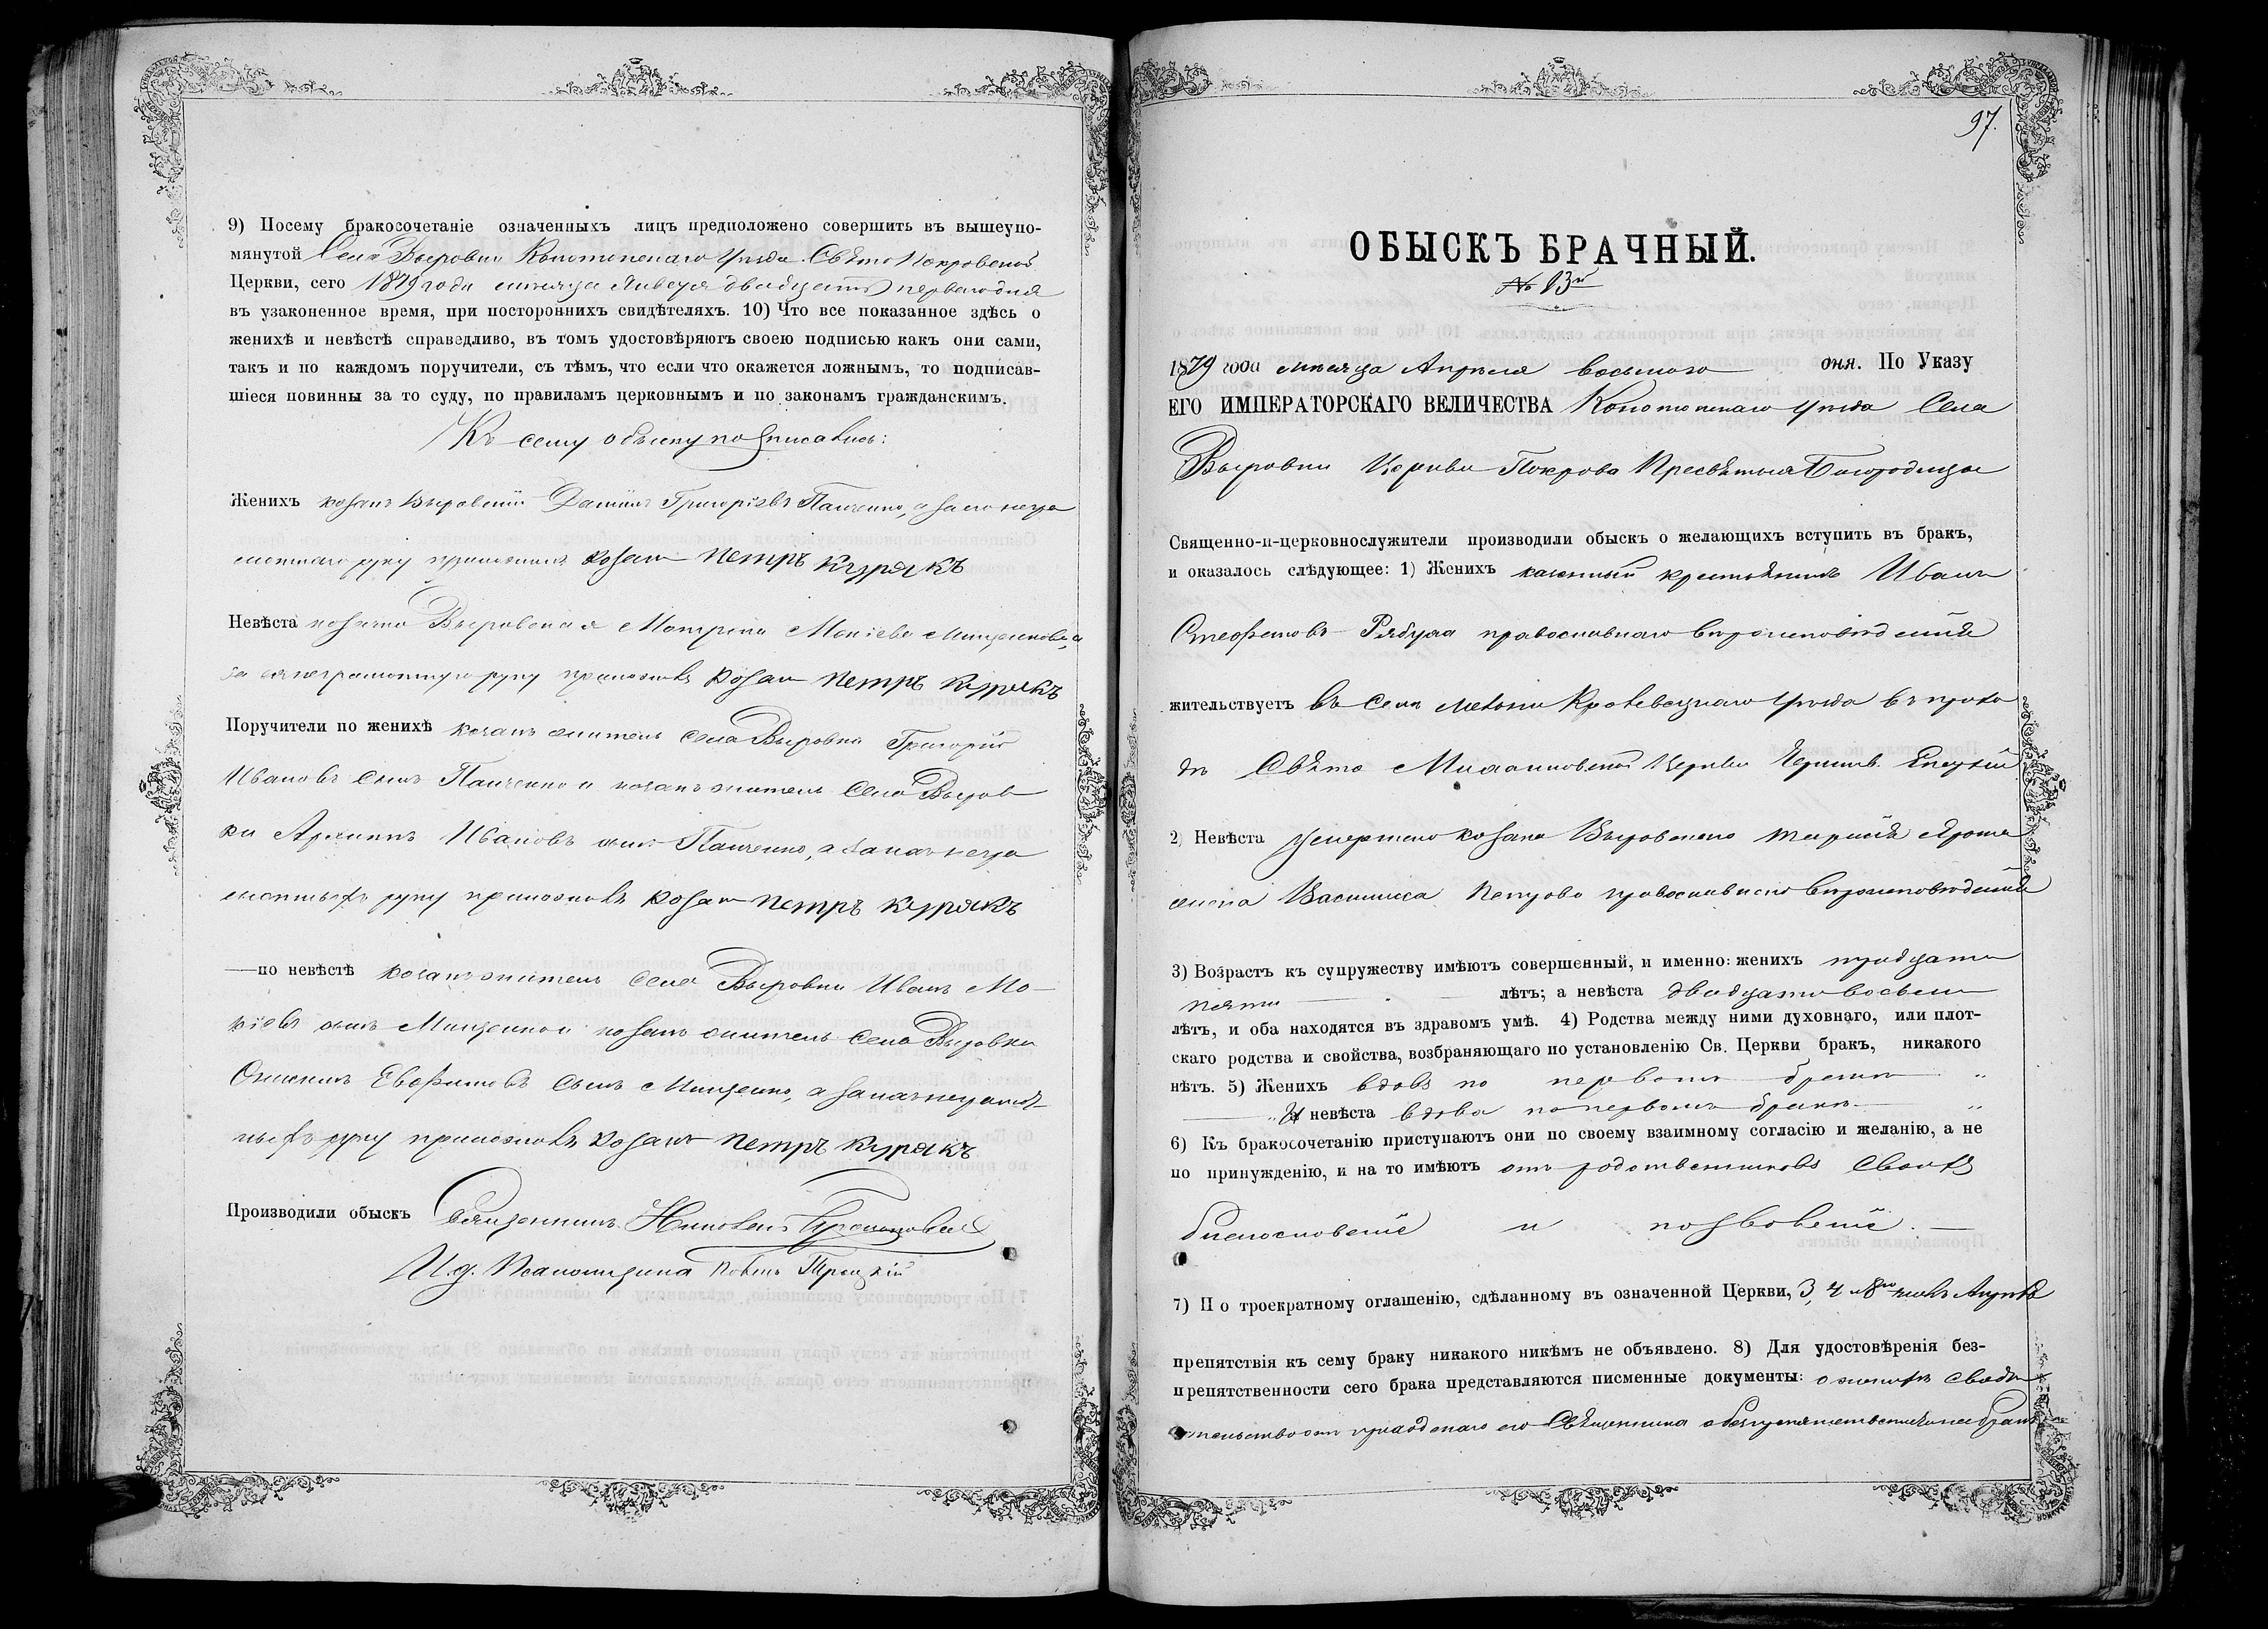 9) Посему бракосочетаніе означенныхъ лицъ предположено совершить въ вышеупо-
мянутой Села Выровки Конотопскаго уѣзда Свѣто Покровской
Церкви, сего 1879 года мѣсяца Января двадцать перваго дня
въ узаконенное время, при постороннихъ свидѣтеляхъ. 10) Что все показанное здѣсь о
женихѣ и невѣстѣ справедливо, въ томъ удостовѣряютъ своею подписью какъ они сами,
такъ и по каждомъ поручители, съ тѣмъ, что если что окажется ложнымъ, то подписав-
шіеся повинны за то суду, по правиламъ церковнымъ и по законамъ гражданскимъ.
Къ сему обыску подписались:
Женихъ козакъ Выровскій Даніилъ Григоріевъ Панченко, а за его негра
мотнаго руку приложилъ козакъ Петръ Курякъ
Невѣста козачка Выровская Матрона Мокіева Мищенкова, а
за ея неграмотную руку приложилъ козакъ Петръ Курякъ
Поручители по женихѣ козакъ житель села Выровки Григорій
Ивановъ сынъ Панченко и козакъ житель Села Выров
ки Ивановъ сынъ Панченко, а за нихъ негра
мотныхъ руку приложилъ козакъ Петръ Курякъ
—по невѣстѣ козакъ житель села Выровки Иванъ Мо-
кіевъ сынъ Мищенко и козакъ житель Села Выровки
Евфимовъ сынъ Мищенко, а за нихъ неграмот-
ныхъ руку приложилъ козакъ Петръ Курякъ
Производили обыскъ Священникъ
И.д. Псаломщика Троцкій
97.
ОБЫСКЪ БРАЧНЫЙ.
№ 13й
1879 года мѣсяца Апрѣля восьмого дня. По Указу
ЕГО ИМПЕРАТОРСКАГО ВЕЛИЧЕСТВА Конотопскаго уѣзда Села
Выровки Церкви Покрова Пресвѣтыя Богородицы
Священно-и-церковнослужители производили обыскъ о желающихъ вступить въ бракъ,
и оказалось слѣдующее: 1) Женихъ казенный крестьянинъ Иванъ
Стефановъ Рябуха православнаго вѣроисповѣданія
жительствуетъ въ Селѣ Кролевецкаго уѣзда въ прихо
дѣ Свѣто Михаиловской Церкви Чернигов. Епархіи
2) Невѣста умершаго козака Выровскаго жена Василиса Петрова православнаго вѣроисповѣданія
3) Возрастъ къ супружеству имѣютъ совершенный, и именно: женихъ тридцати
пяти лѣтъ; а невѣста двадцати восьми
лѣтъ, и оба находятся въ здравомъ умѣ. 4) Родства между ними духовнаго, или плот-
скаго родства и свойства, возбраняющаго по установленію Св. Церкви бракъ, никакого
нѣтъ. 5) Женихъ вдовъ по первомъ бракѣ
И невѣста вдова по первомъ бракѣ
6) Къ бракосочетанію приступаютъ они по своему взаимному согласію и желанію, а не
по принужденію, и на то имѣютъ отъ родственниковъ своихъ
благословеніе и позволеніе.
7) По троекратному оглашенію, сдѣланному въ означенной Церкви, 3, 4 и 8го числъ Апрѣля
препятствія къ сему браку никакого никѣмъ не объявлено. 8) Для удостовѣренія без-
препятственности сего брака представляются писменные документы: о женихѣ Свидѣ
тельство отъ приходскаго его Священника о безпрепятственномъ бракѣ